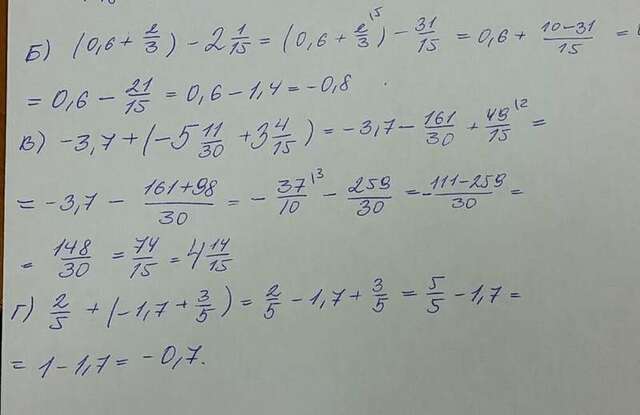 Б) (0,6 + 2/3) - 2 1/15 = (0,6 + 2/3^{15}) - 31/15 = 0,6 + (10-31)/15 =
= 0,6 - 21/15 = 0,6 - 1,4 = -0,8
В) -3,7 + (-5 11/30 + 3 4/15) = -3,7 - 161/30 + 49/15^{12} =
= -3,7 - (161+98)/30 = - 37/10^{13} - 259/30 = (-111-259)/30 =
= 148/30 = 74/15 = 4 14/15
Г) 2/5 + (-1,7 + 3/5) = 2/5 - 1,7 + 3/5 = 5/5 - 1,7 =
= 1 - 1,7 = -0,7.